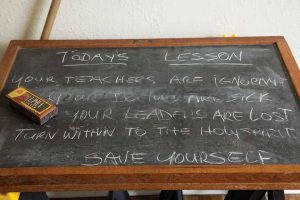 TODAY'S LESSON
YOUR TEACHERS ARE IGNORANT
YOUR DOCTORS ARE SICK
YOUR LEADERS ARE LOST
TURN WITHIN TO THE HOLY SPIRIT
SAVE YOURSELF